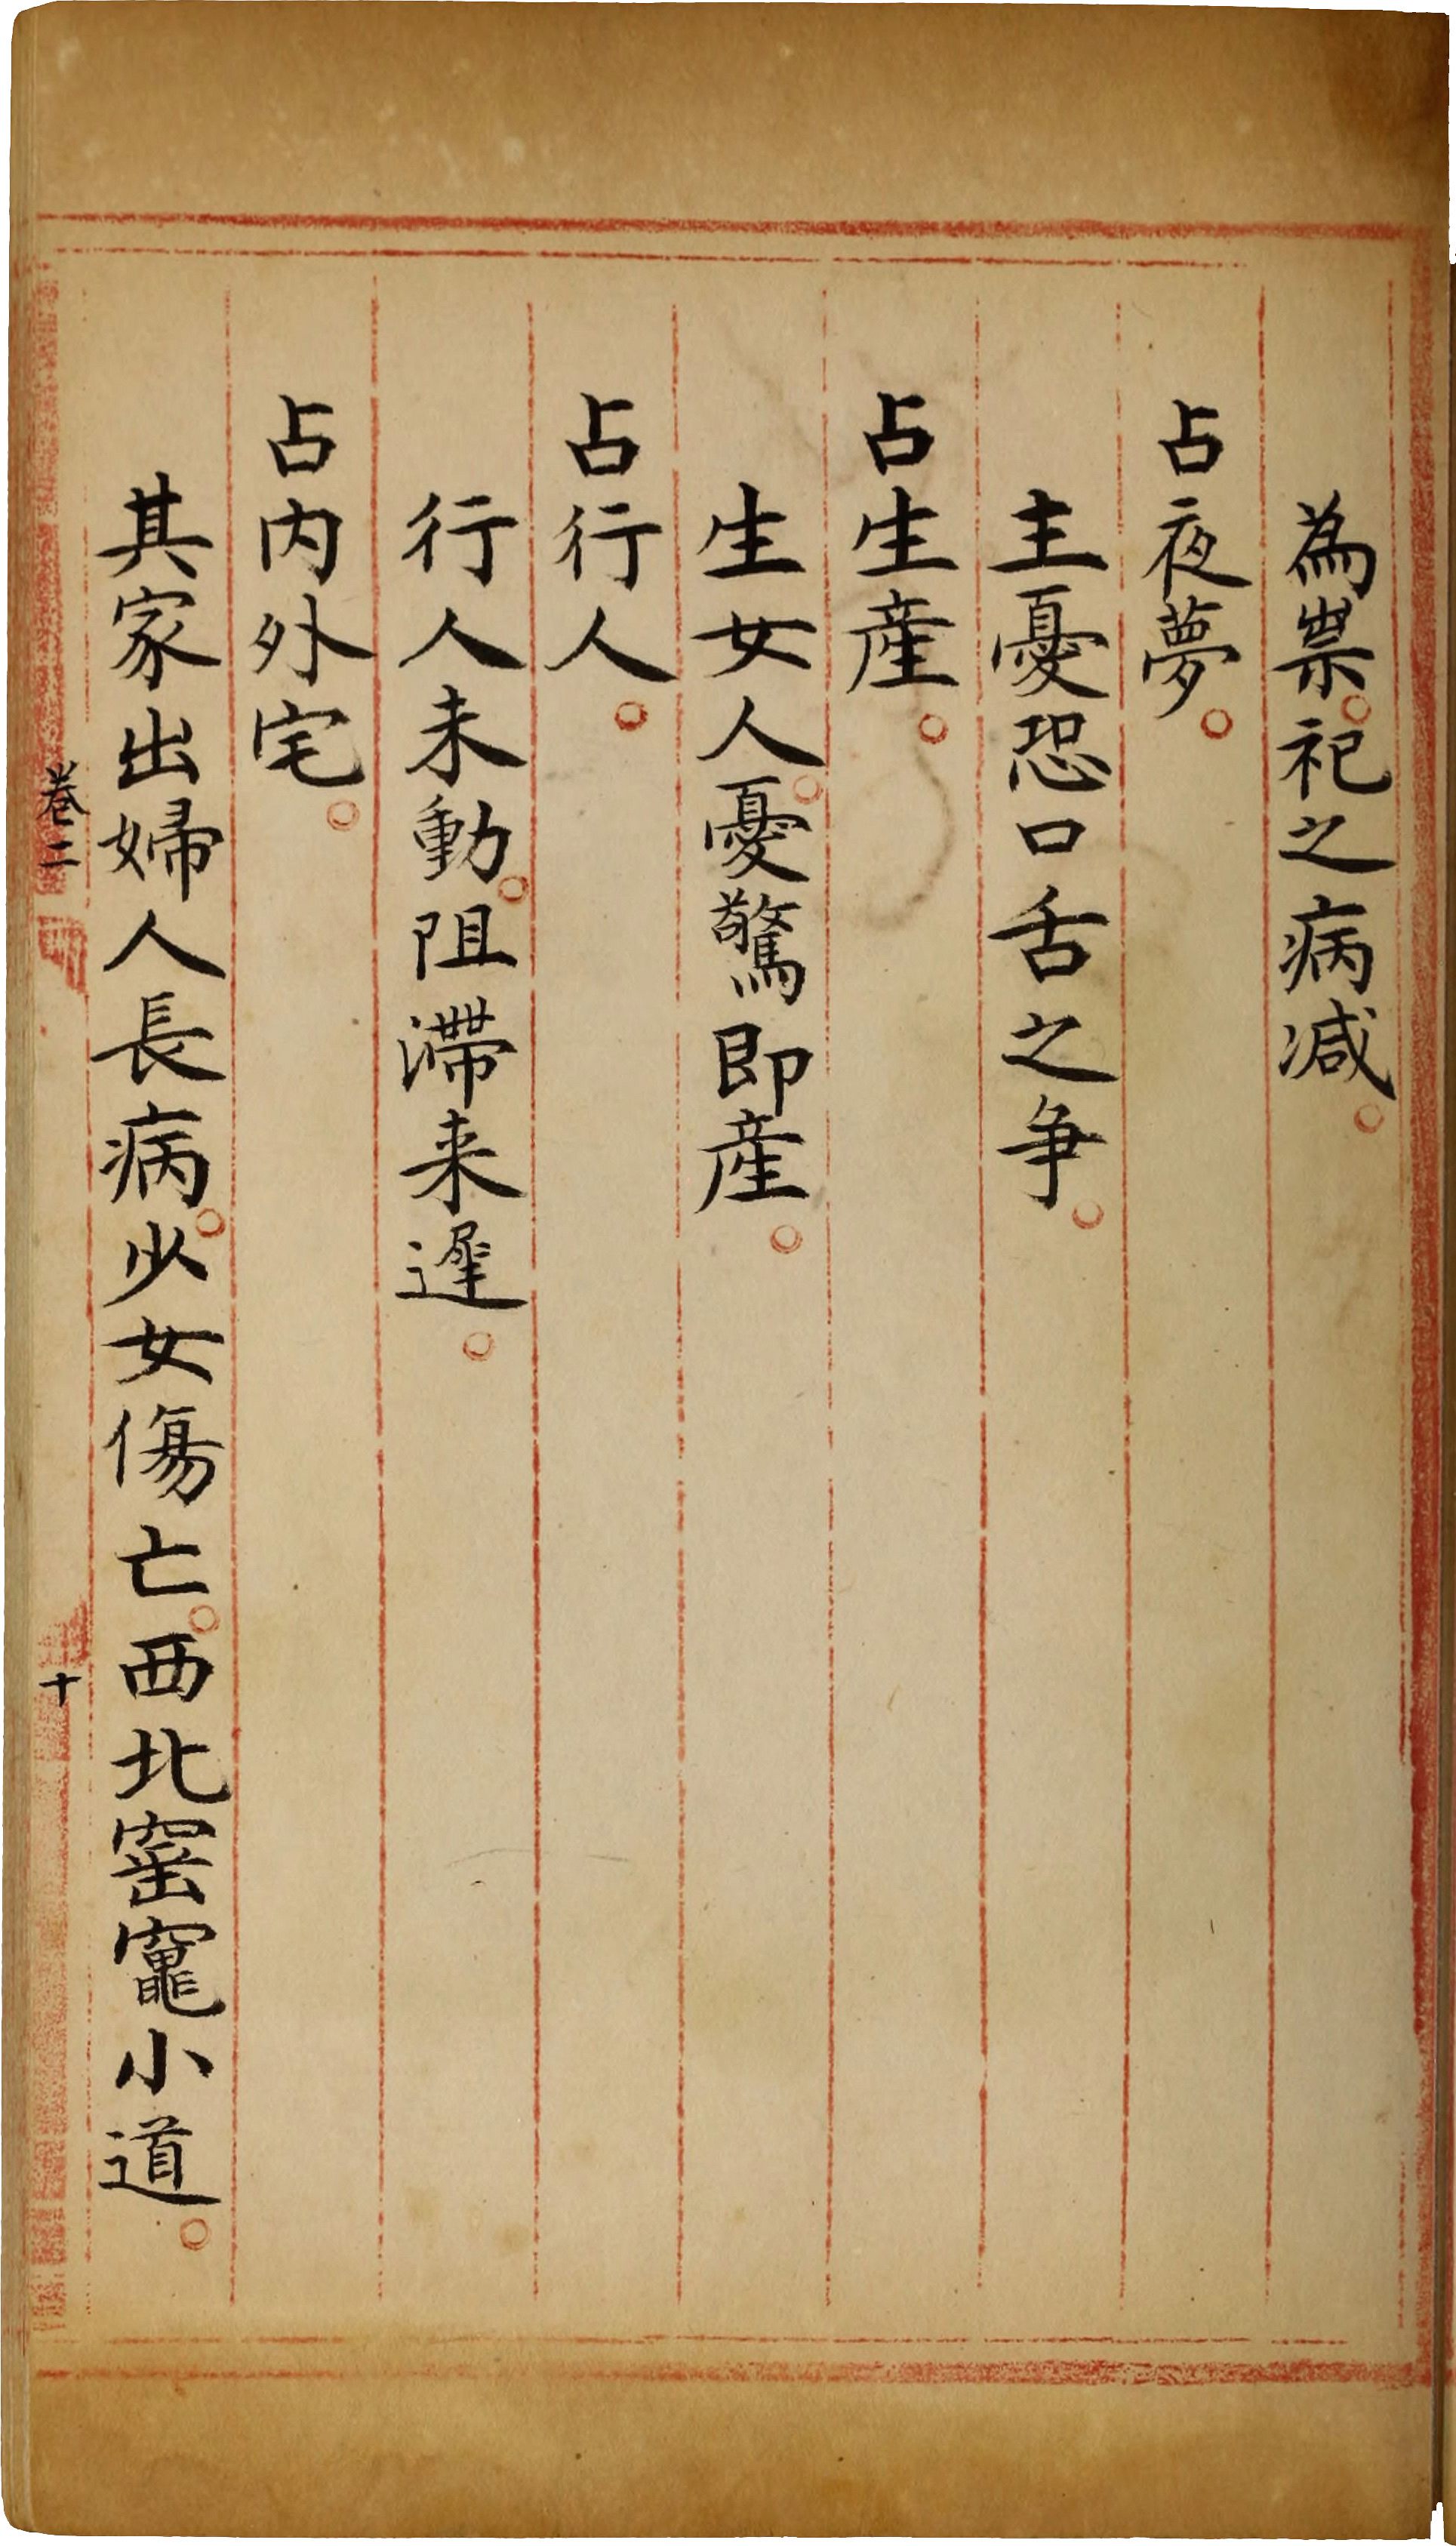 為祟。祀之病减。
占夜夢。
主憂恐口舌之争。
占生産。
生女人。憂驚即産。
占行人。
行人未動。阻滯来遲。
占内外宅。
其家出婦人長病。少女傷亡。西北窰竈小道。
卷二
十